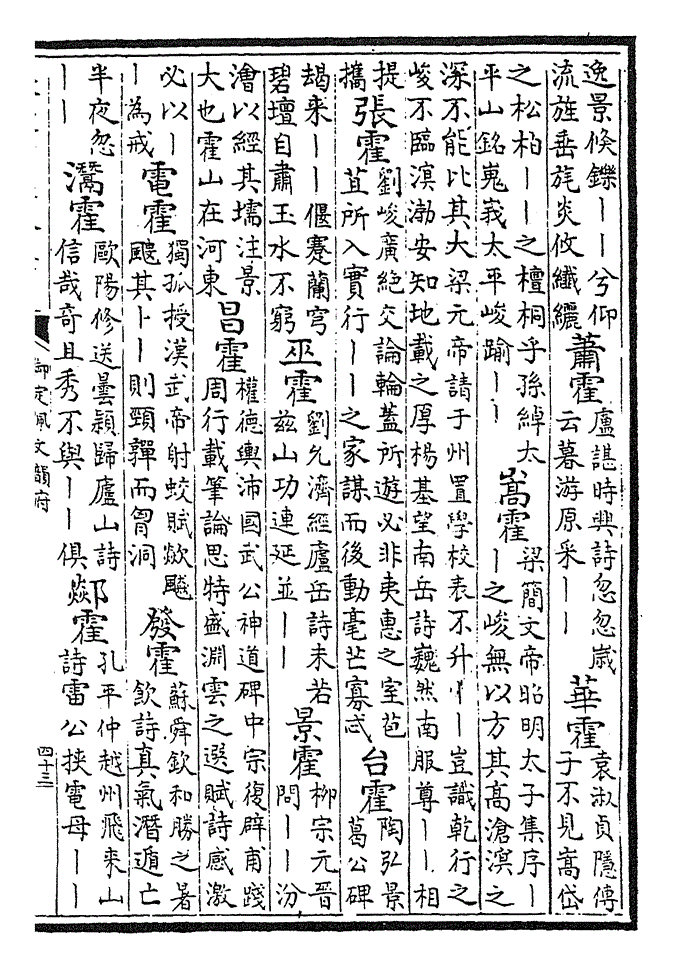 逸景倏鑠｜｜兮仰
流旌垂旄炎攸纖纚
蕭霍
盧諶時興詩忽忽歲
云暮游原采｜｜
華霍
袁淑貞隱傳
子不見嵩岱
之松柏｜｜之檀桐乎孫綽太
平山銘嵬峩太平峻踰｜｜
嵩霍
梁簡文帝昭明太子集序｜
｜之峻無以方其高滄溟之
深不能比其大梁元帝請于州置學校表不升｜｜豈識乾行之
峻不臨溟渤安知地載之厚楊基望南岳詩巍然南服尊｜｜相
提
攜
張霍
劉峻廣絶交論輪蓋所遊必非夷惠之室苞
苴所入實行｜｜之家謀而後動毫芒寡忒
台霍
陶弘景
葛公碑
朅来｜｜偃蹇蘭穹
碧壇自肅玉水不窮
巫霍
劉允濟經廬岳詩未若
兹山功連延並｜｜
景霍
柳宗元晉
問｜｜汾
澮以經其壖注景
大也霍山在河東
昌霍
權德輿沛國武公神道碑中宗復辟甫踐
周行載筆論思特盛淵雲之選賦詩感激
必以｜
｜為戒
電霍
獨孤授漢武帝射蛟賦欻飈
颾其｜｜則頸彈而胷洞
發霍
蘇舜欽和勝之暑
飲詩真氣潛遁亡
半夜忽
｜｜
灊霍
歐陽修送曇潁歸廬山詩
信哉奇且秀不與｜｜俱
歘霍
孔平仲越州飛来山
詩雷公挾電母｜｜
御定佩文韻府
四十三